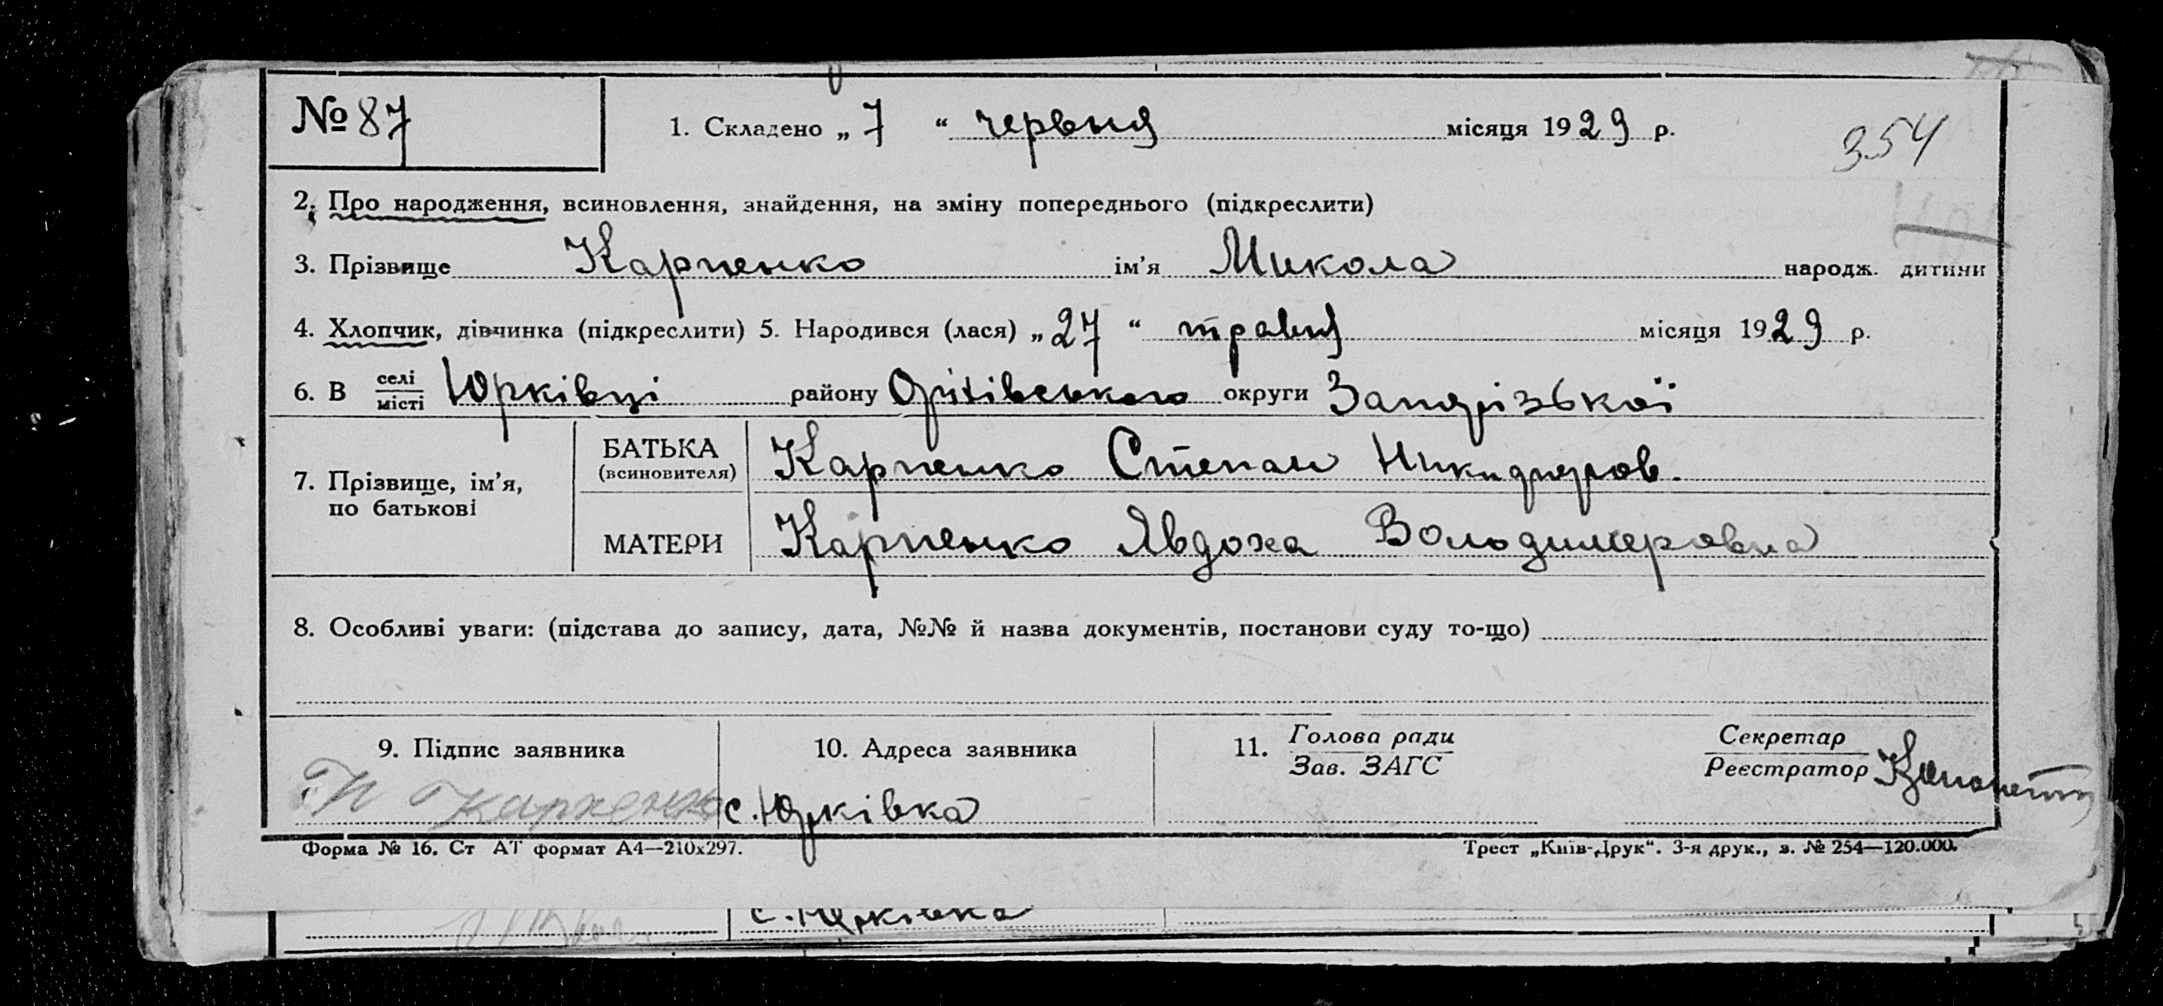 № 87 1. Складено „ 7 “ червня місяця 1929 р.
354
2. Про народження, всиновлення, знайдення, на зміну попереднього (підкреслити)
3. Прізвище Карпенко ім’я Микола народж. дитини
4. Хлопчик, дівчинка (підкреслити) 5. Народився (лася) „ 27 “ травня місяця 1929 р.
6. В селі місті Юрківці району Оріхівського округи Запорізької
7. Прізвище, ім’я, по батькові
БАТЬКА (всиновителя) Карпенко Степан Никифоров.
МАТЕРИ Карпенко Явдоха Володимеровна
8. Особливі уваги: (підстава до запису, дата, №№ й назва документів, постанови суду то-що)
9. Підпис заявника 10. Адреса заявника 11. Голова ради Секретар
Зав. ЗАГС Реєстратор
Карпенко с. Юрківка
Форма № 16. Ст АТ формат А4—210х297. Трест „Київ-Друк“. 3-я друк., з. № 254—120.000.
с. Юрківка